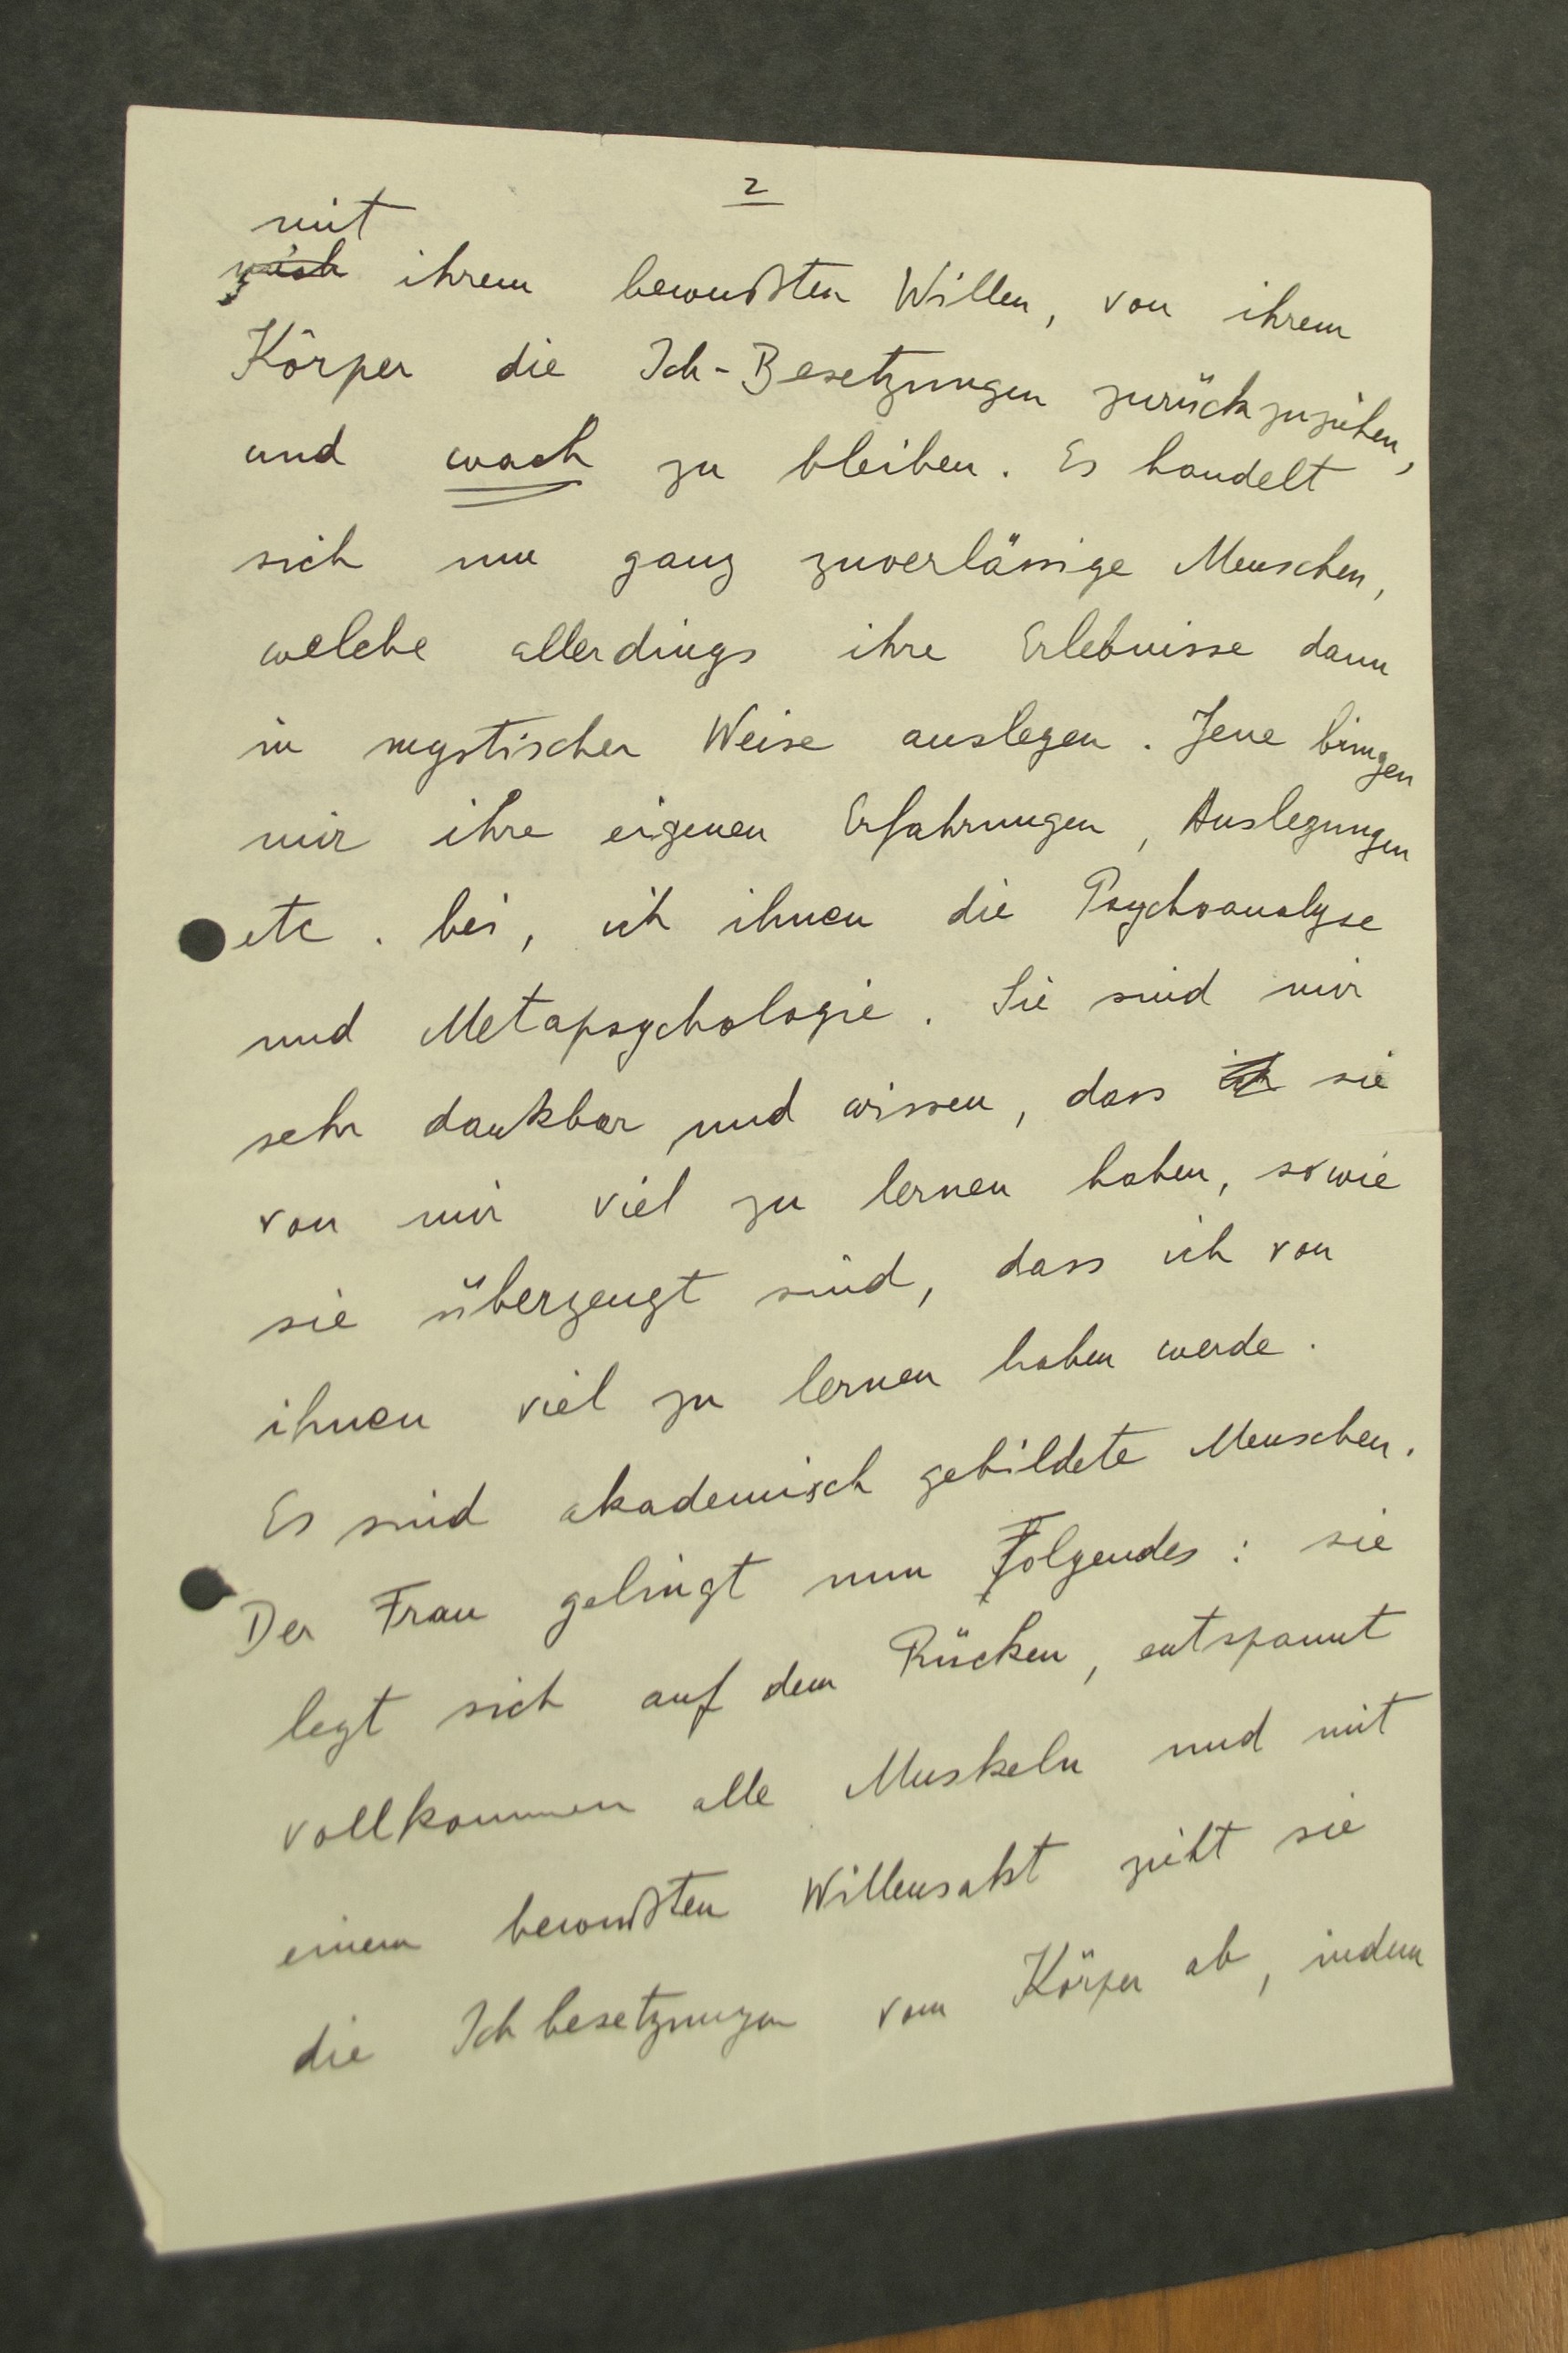 2
mit
ihrem bewußten Willen, von ihrem
Körper die Ich-Besetzungen zurückzuziehen,
und wach zu bleiben. Es handelt
sich um ganz zuverlässige Menschen,
welche allerdings ihre Erlebnisse dann
in mystischer Weise auslegen. Jene bringen
mir ihre eigenen Erfahrungen, Auslegungen
etc. bei, ich ihnen die Psychoanalyse
und Metapsychologie. Sie sind mir
sehr dankbar und wissen, dass sie
von mir viel zu lernen haben, sowie
sie überzeugt sind, dass ich von
ihnen viel zu lernen haben werde.
Es sind akademisch gebildete Menschen.
Der Frau gelingt nun Folgendes: sie
legt sich auf den Rücken, entspannt
vollkommen alle Muskeln und mit
einem bewußten Willensakt zieht sie
die Ichbesetzungen vom Körper ab, indem